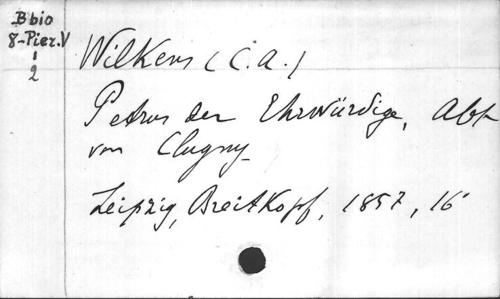 Bbio
8-Pier.V
1
2
Wilkens (C.A.)
Petrus der Ehrwürdige, Abt
von Clugny
Leipzig, Breitkopf, 1857, 16°